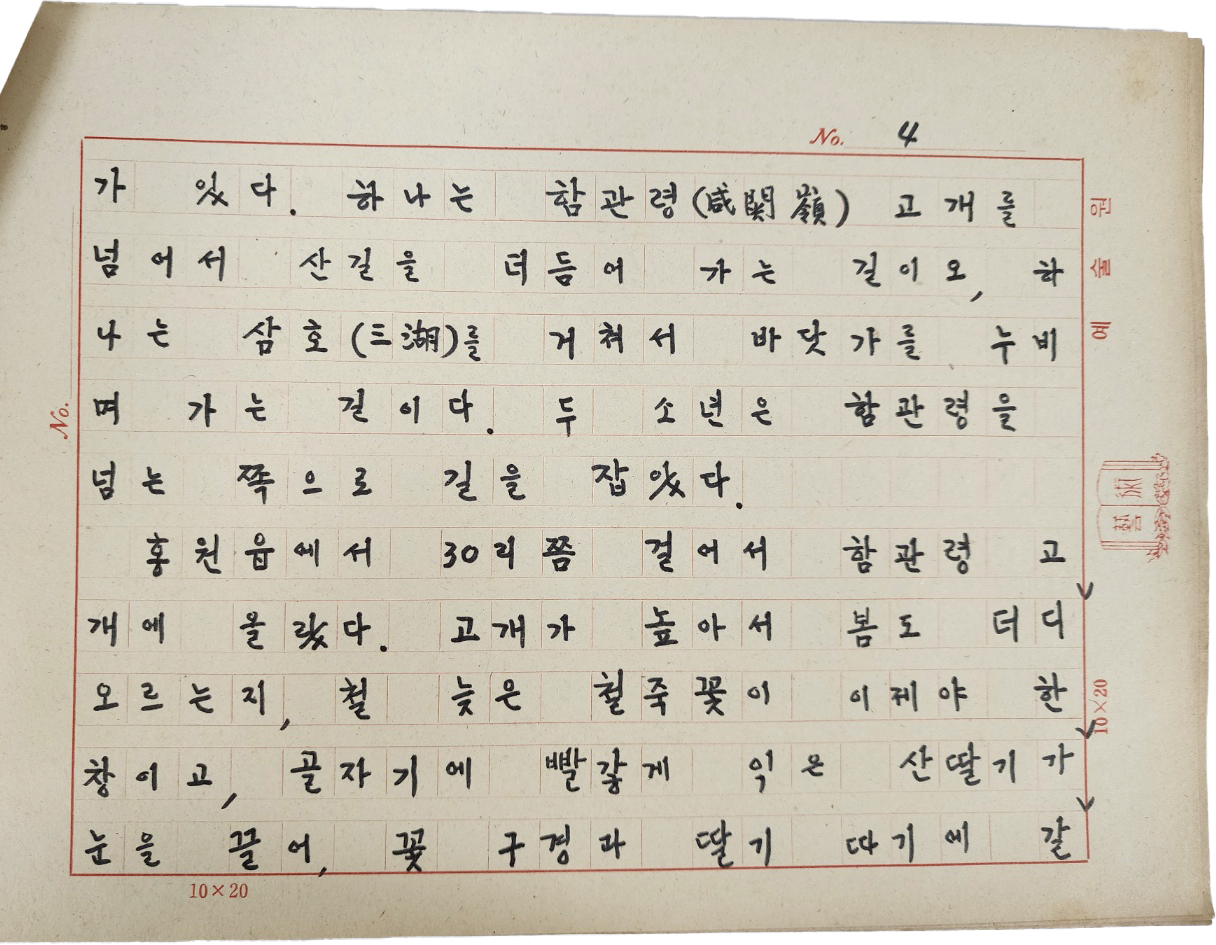 No. 4
가 있다. 하나는 함관령(咸関嶺) 고개를
넘어서 산길을 더듬어 가는 길이오, 하
나는 삼호(三湖)를 거쳐서 바닷가를 누비
며 가는 길이다. 두 소년은 함관령을
넘는 쪽으로 길을 잡았다.
홍원읍에서 30리쯤 걸어서 함관령 고
개에 올랐다. 고개가 높아서 봄도 더디
오르는지, 철 늦은 철죽꽃이 이제야 한
창이고, 골자기에 빨갛게 익은 산딸기가
눈을 끌어, 꽃 구경과 딸기 따기에 갈
10×20
No.
예술원
藝術
10×20